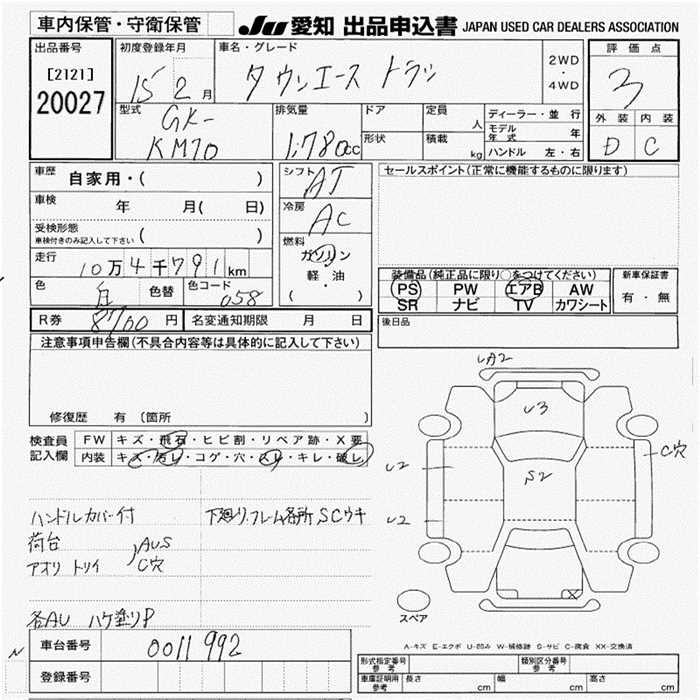 車内保管・守衛保管 JU 愛知 出品申込書 JAPAN USED CAR DEALERS ASSOCIATION
出品番号 初度登録年月 車名・グレード 評価点
[2121] 15 2月 タウンエース トラック 2WD・4WD 3
20027
型式 排気量 ドア 定員 人 ディーラー・並行 外装 内装
GK-KM70 1,780cc 形状 積載 kg モデル年式 年 D C
ハンドル 左・右
車歴 自家用・( ) シフト AT セールスポイント(正常に機能するものに限ります)
車検 年 月( 日) 冷房 AC
受検形態 車検付きのみ記入して下さい ( )
走行 10万4千791km 燃料 ガソリン 軽・油 ( ) 装備品(純正品に限り○をつけてください) 新車保証書
色 白 色替 色コード 058 PS PW エアB AW 有・無
SR ナビ TV カワシート
R券 円 名変通知期限 月 日 後日品
注意事項申告欄(不具合内容等は具体的に記入して下さい)
修復歴 有 〔箇所 〕
検査員記入欄 FW キズ・飛石・ヒビ割・リペア跡・X要
内装 キズ・汚レ・コゲ・穴・スレ・キレ・破レ
ハンドルカバー付 下廻り、フレーム各所SCウキ
荷台 AUS
アオリ トリイ C穴
各AU ハケ塗りP
UA2
U3
C穴
U2
S2
U2
X
スペア
A-キズ E-エクボ U-凹み W-補修跡 S-サビ C-腐食 XX-交換済
車台番号 0011992
登録番号
形式指定番号 参考 類別区分番号 参考
車庫証明用 参考 長さ cm 幅 cm 高さ cm